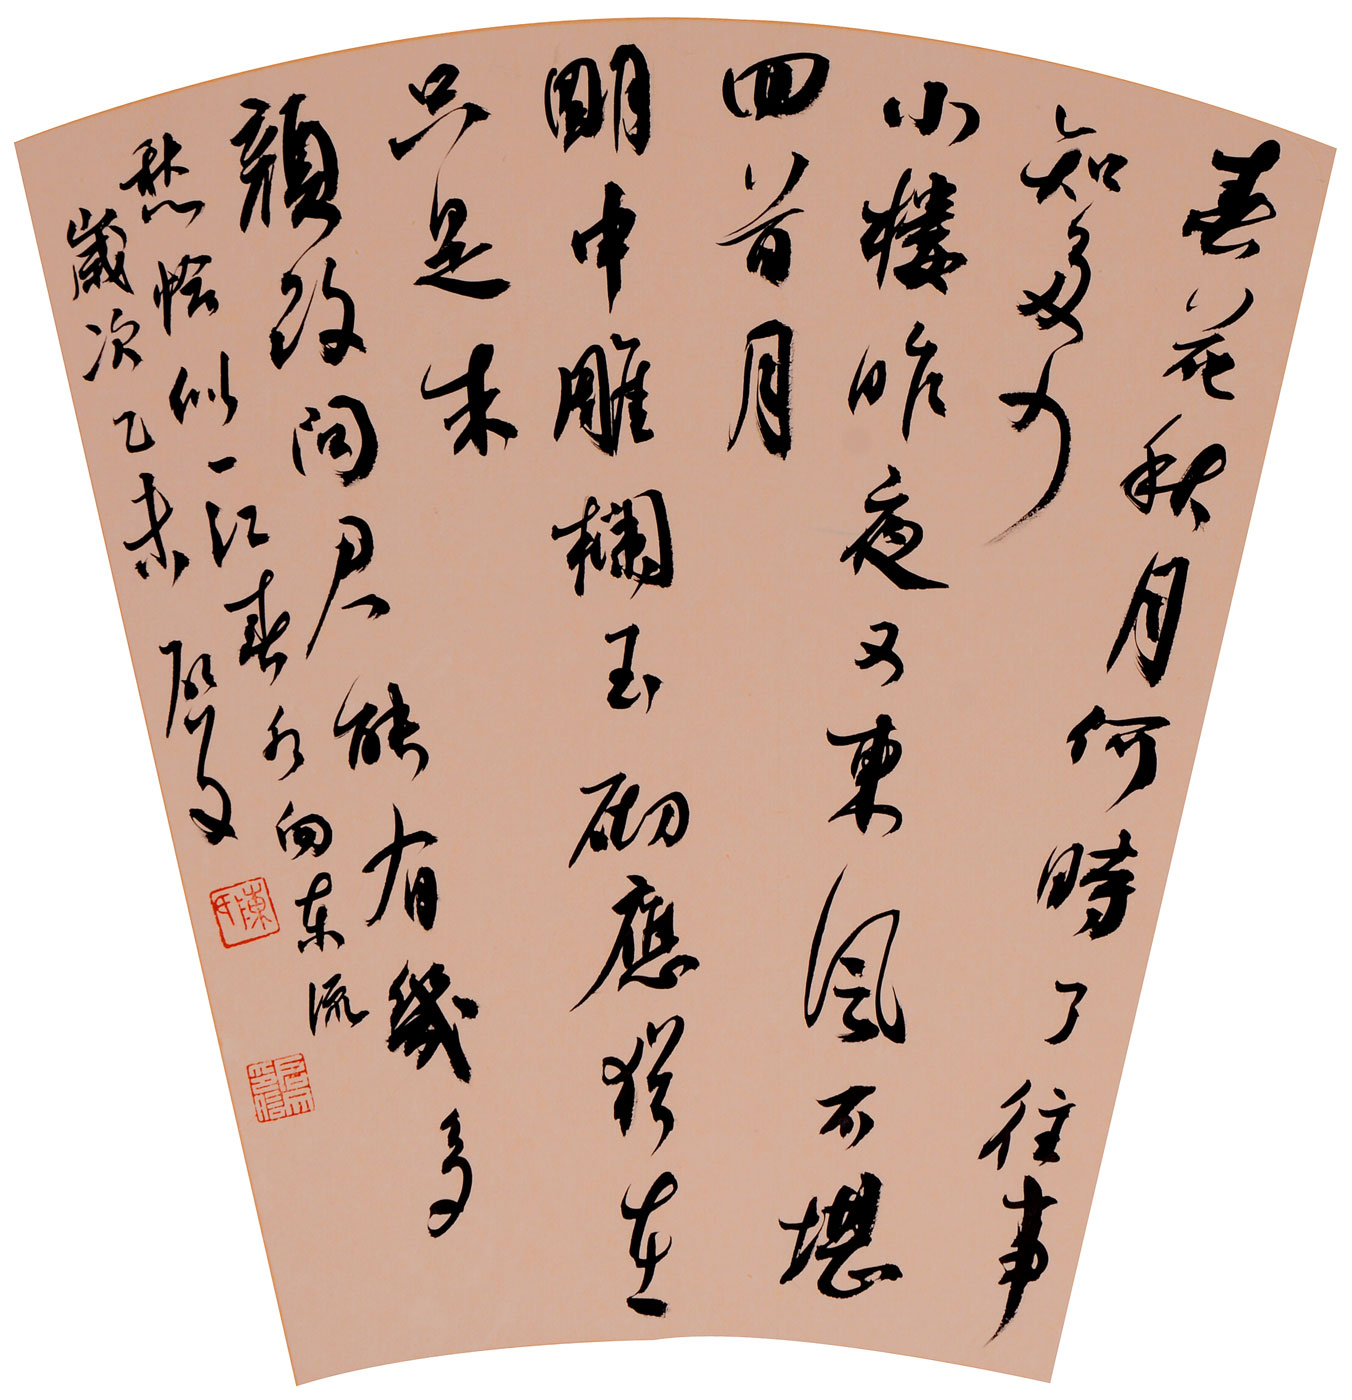 春花秋月何時了往事
知多少
小樓昨夜又東風不堪
囬首月
朙中雕欄玉砌應猶在
只是朱
顏改問君能有幾多
愁恰似一江春水向東流
歲次乙未
陳